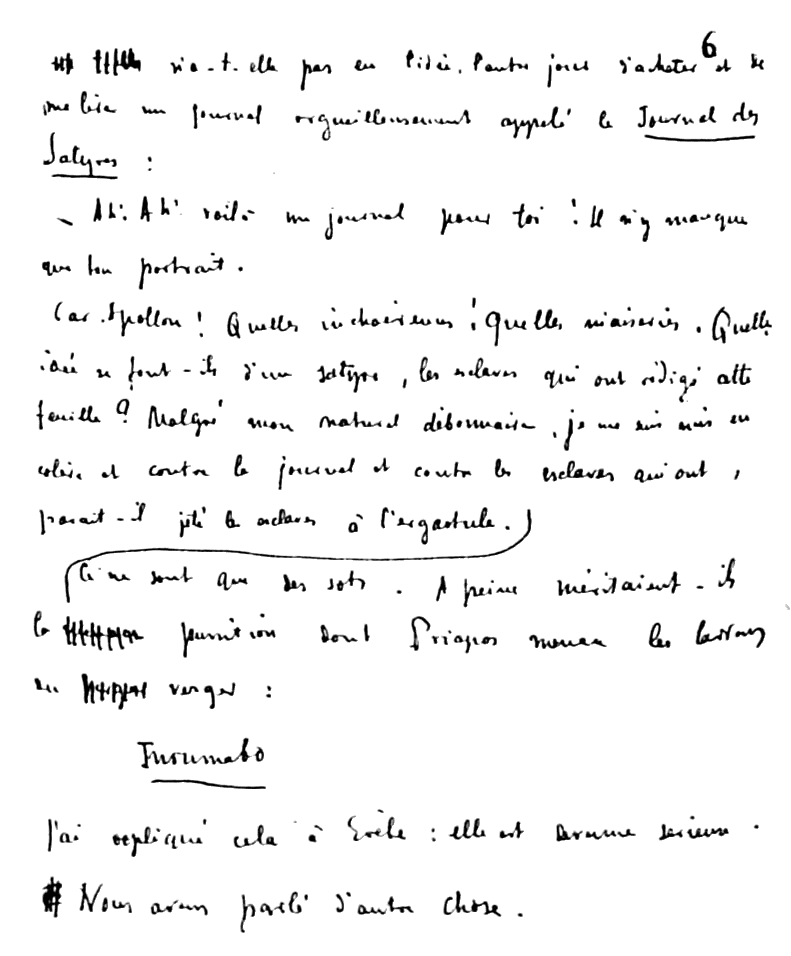 6
n'a-t-elle pas eu l'idée, l'autre jour d'acheter et de
me lire un journal orgueilleusement appelé le Journal des
Satyres :
– Ah! Ah! voilà un journal pour toi ! Il n'y manque
que ton portrait.
Par Apollon ! Quelles incohérences ! Quelles niaiseries. Quelle
idée se font-ils d'un satyre, les esclaves qui ont rédigé cette
feuille ? Malgré mon naturel débonnaire, je me suis mis en
colère et contre le journal et contre les esclaves qui ont,
paraît-il jeté les esclaves à l'ergastule.
Ce ne sont que des sots. A peine méritaient-ils
la punition dont Priapos menace les larrons
du verger :
J'ai expliqué cela à : elle est devenue serieuse.
Nous avons parlé d'autre chose.